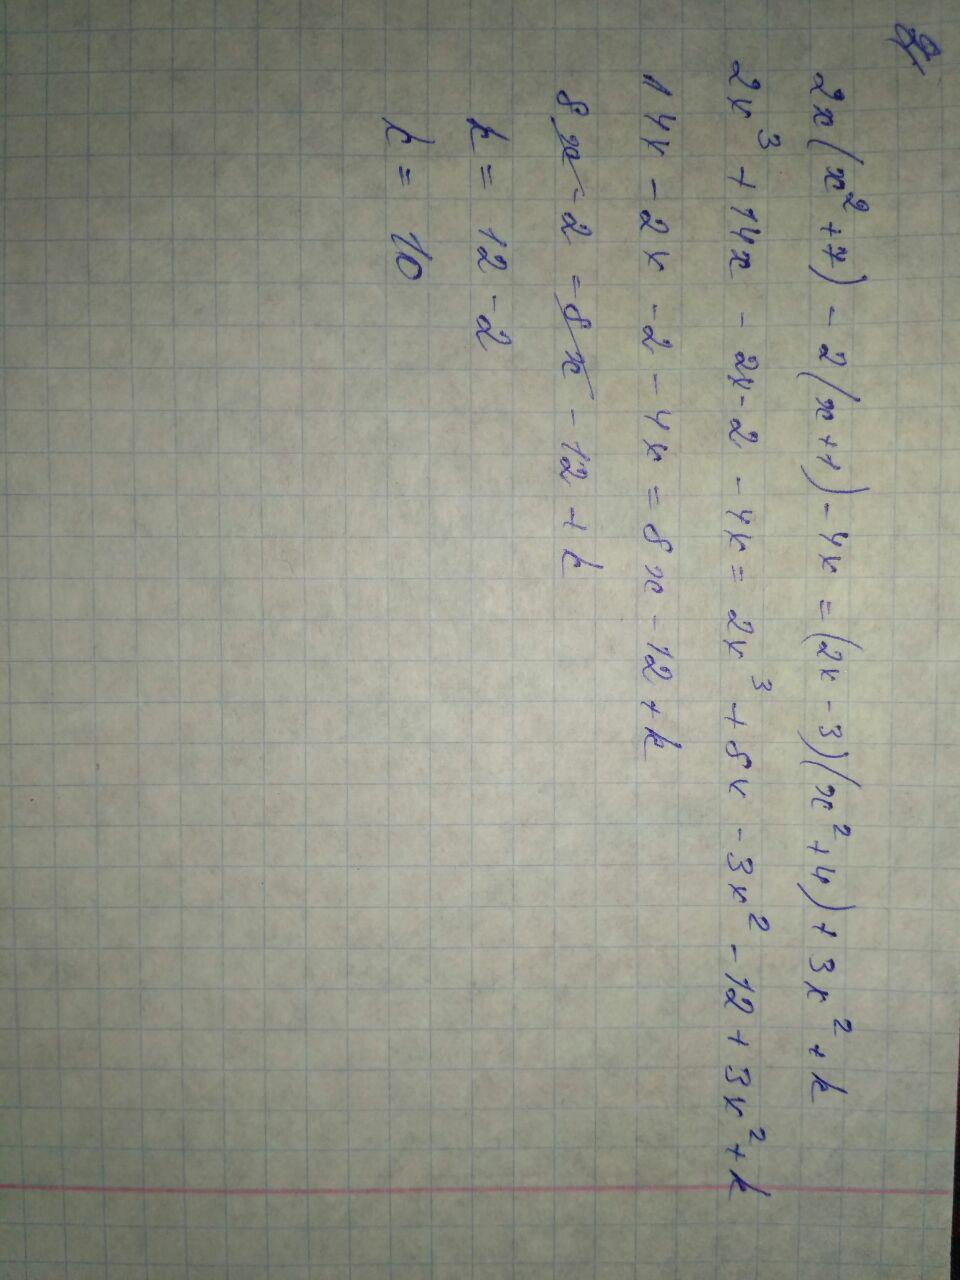 2x(x²+7)-2(x+1)-4x=(2x-3)(x²+4)+3x²+k
2x³+14x-2x-2-4x=2x³+8x-3x²-12+3x²+k
14x-2x-2-4x=8x-12+k
8x-2=8x-12+k
k=12-2
k=10